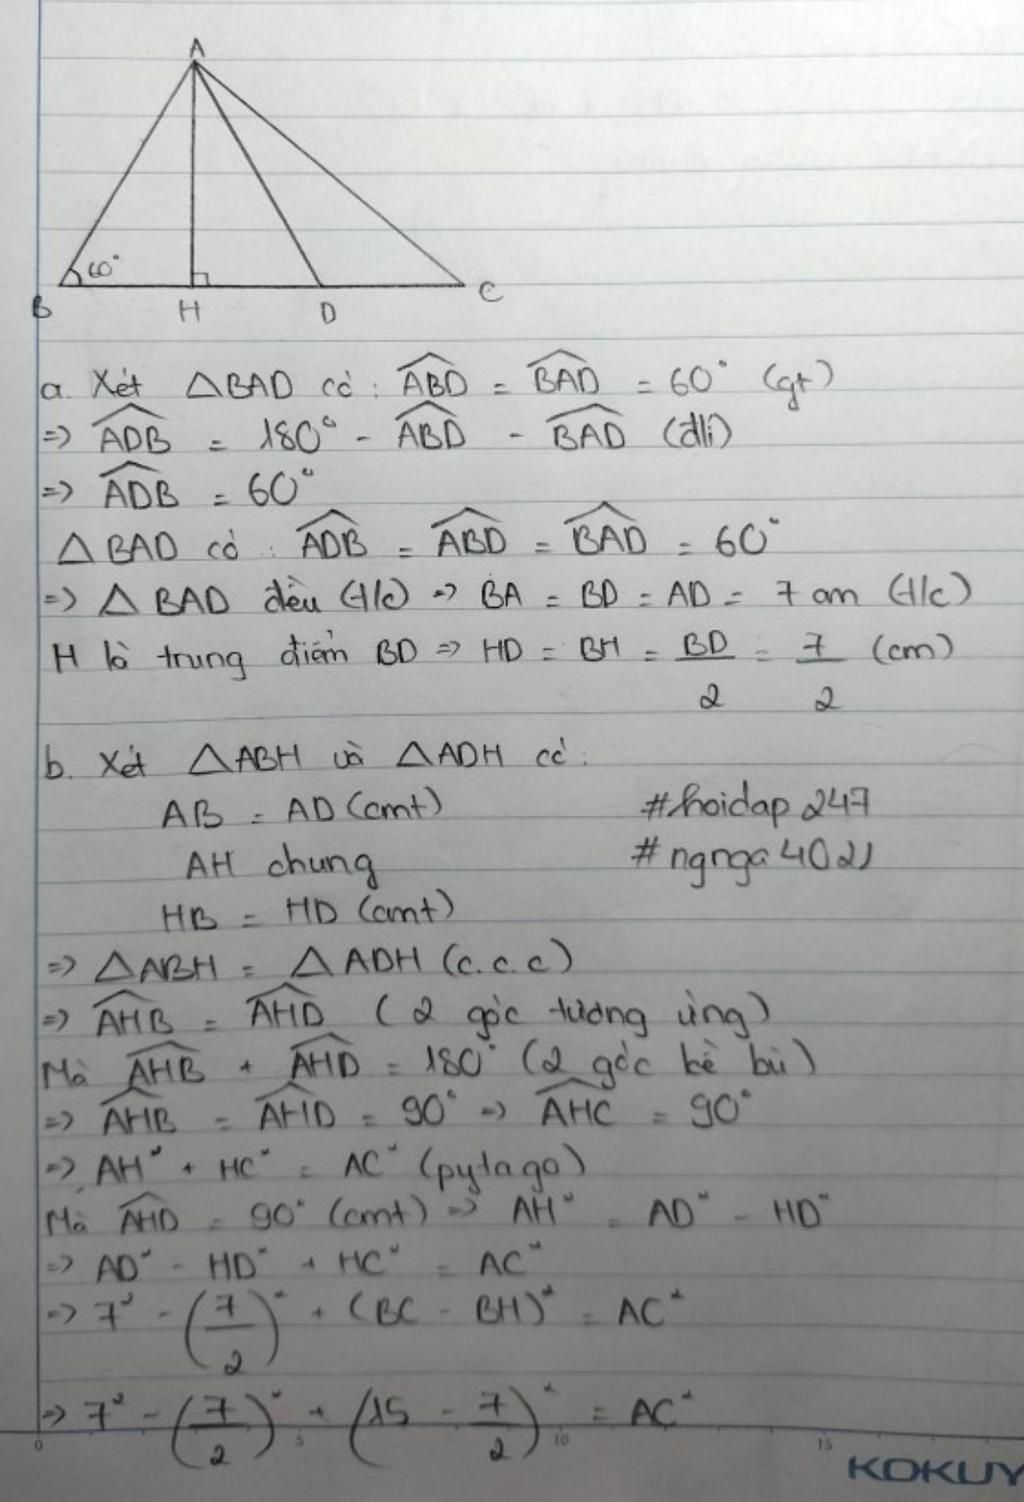 A
60°
B H D C
a. Xét △BAD có: ABD̂ = BAD̂ = 60° (gt)
=> ADB̂ = 180° - ABD̂ - BAD̂ (đlí)
=> ADB̂ = 60°
△BAD có: ADB̂ = ABD̂ = BAD̂ = 60°
=> △BAD đều (t/c) => BA = BD = AD = 7cm (t/c)
H là trung điểm BD => HD = BH = BD/2 = 7/2 (cm)
b. Xét △ABH và △ADH có:
AB = AD (cmt) #hoidap247
AH chung #ngnga4021
HB = HD (cmt)
=> △ABH = △ADH (c.c.c)
=> AHB̂ = AHD̂ (2 góc tương ứng)
Mà AHB̂ + AHD̂ = 180° (2 góc kề bù)
=> AHB̂ = AHD̂ = 90° => AHĈ = 90°
=> AH² + HC² = AC² (pytago)
Mà AHD̂ = 90° (cmt) => AH² = AD² - HD²
=> AD² - HD² + HC² = AC²
=> 7² - (7/2)² + (BC - BH)² = AC²
=> 7² - (7/2)² + (15 - 7/2)² = AC²
0 5 10 15
KOKUY